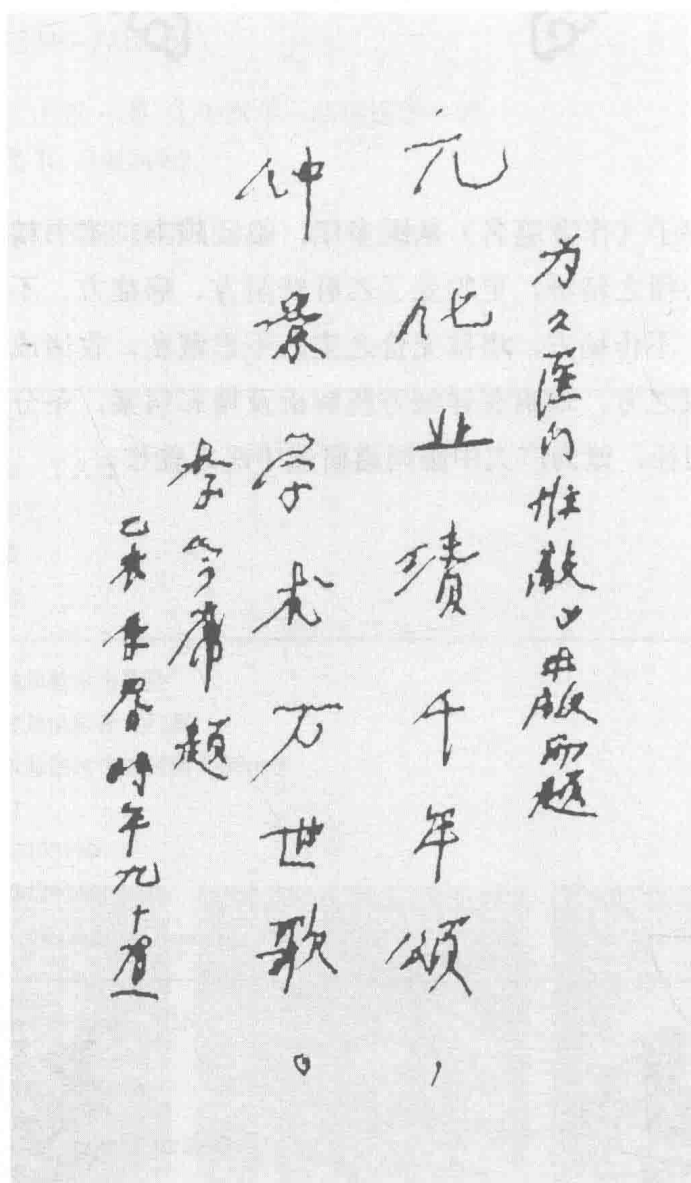 为《医门推敲》出版而题
元化业绩千年颂，
仲景学术万世歌。
李今庸题
乙未季春时年九十有一